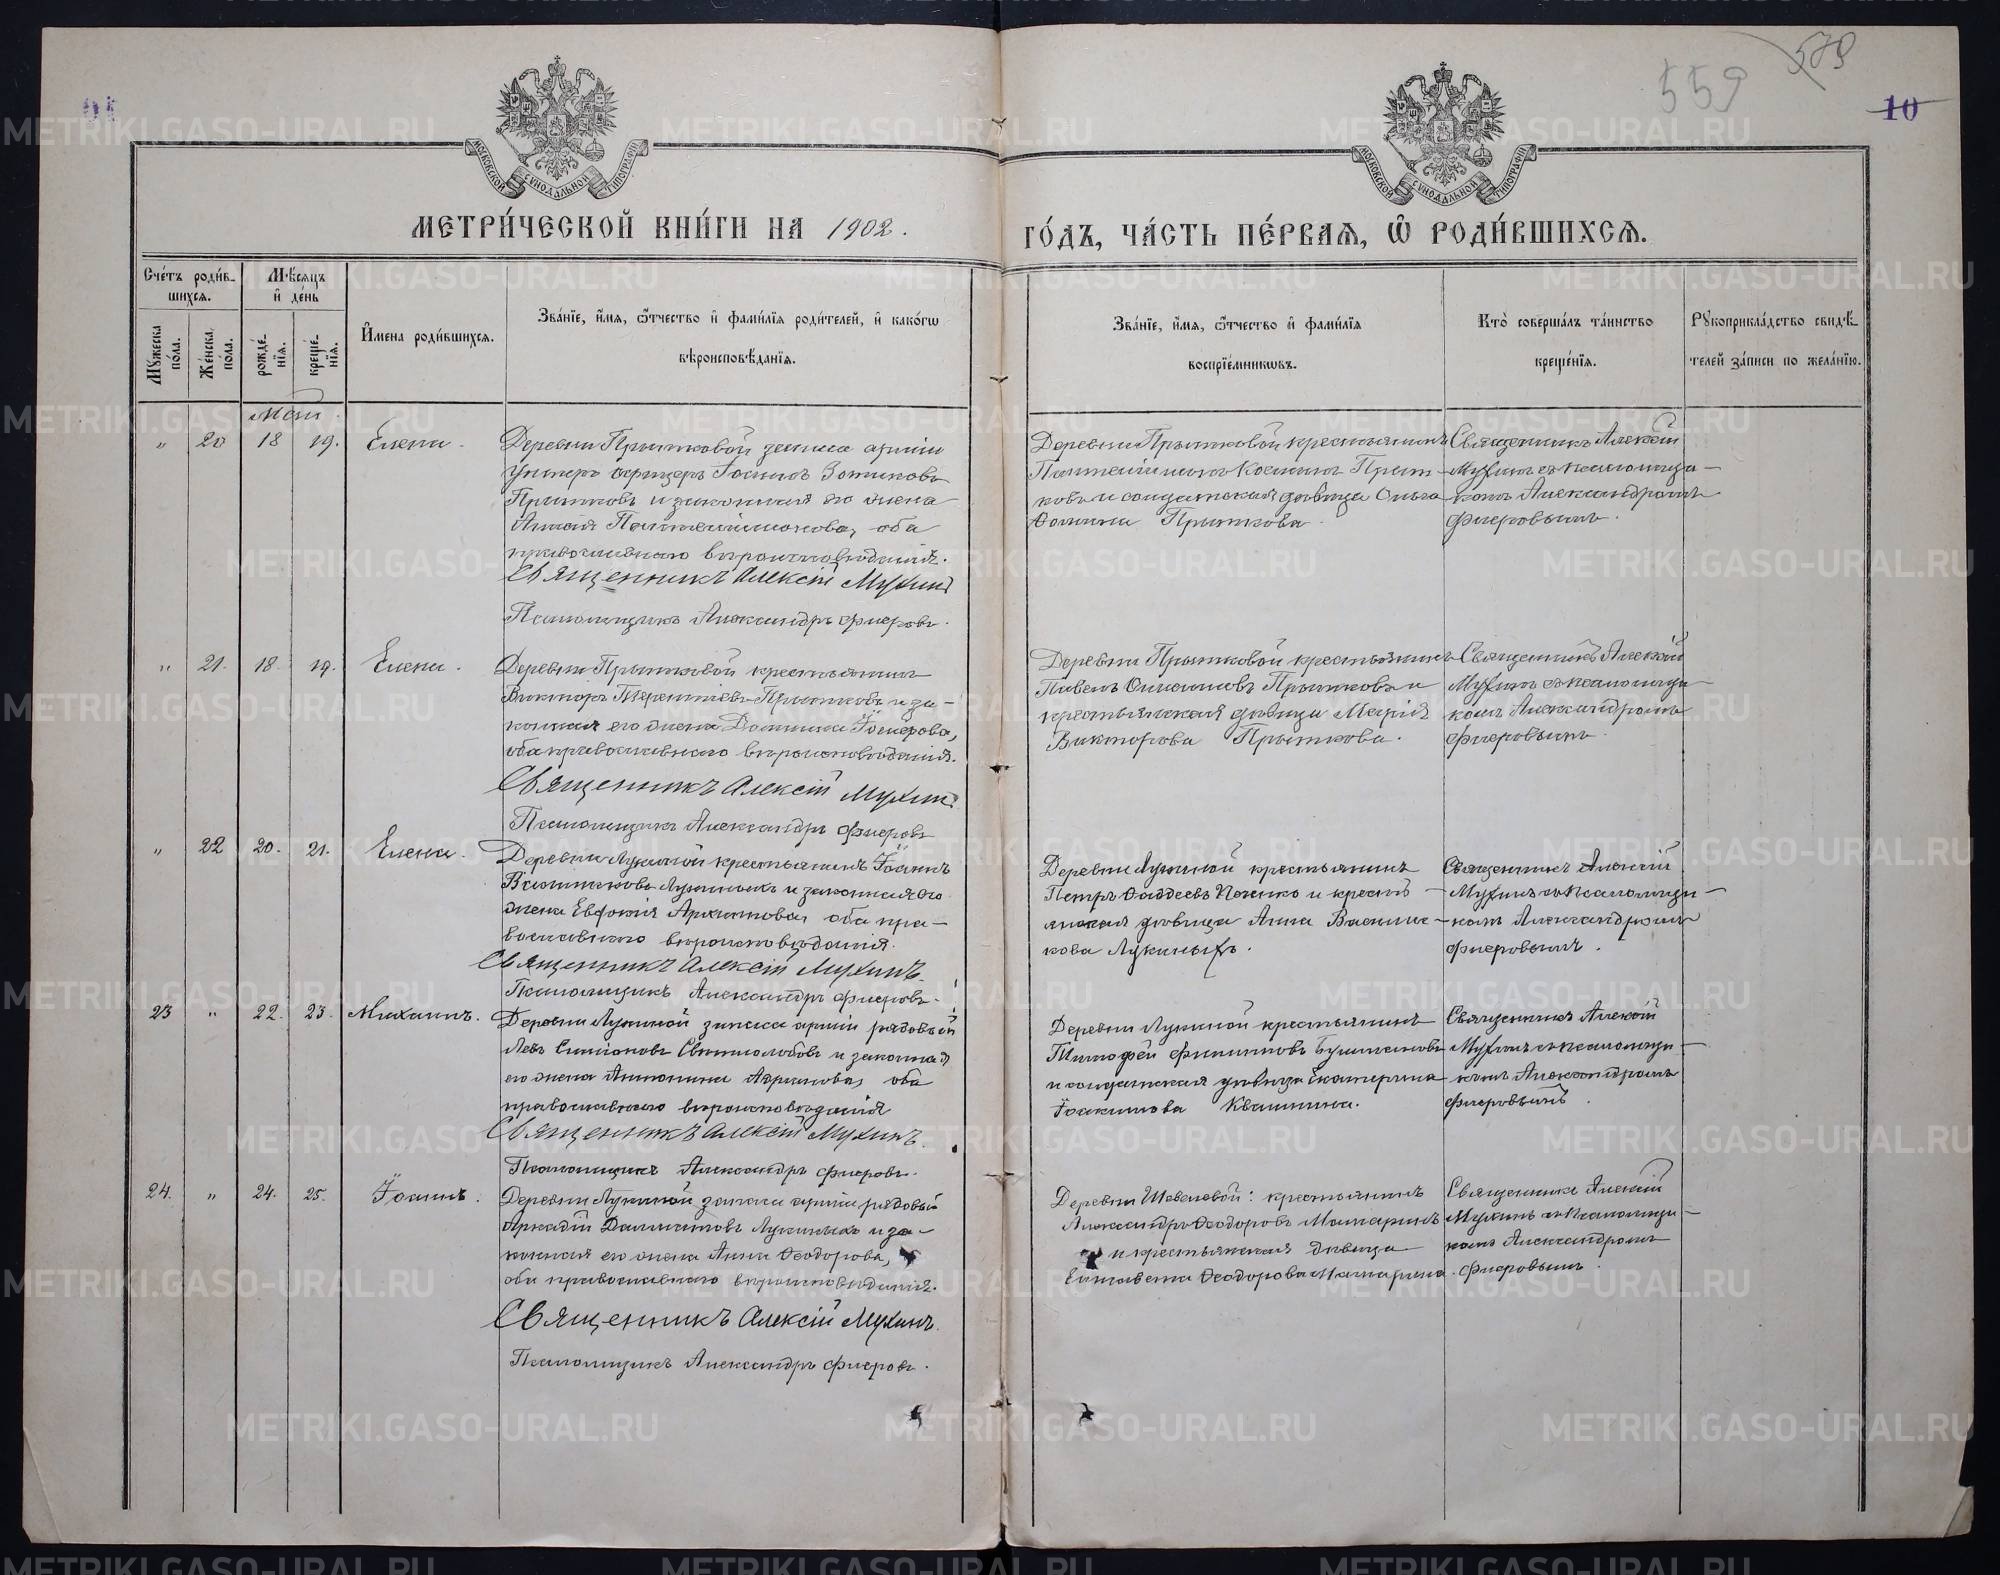 579
559
10
МОСКОВСКОЙ СѴНОДАЛЬНОЙ ТИПОГРАФІИ
МОСКОВСКОЙ СѴНОДАЛЬНОЙ ТИПОГРАФІИ
МЕТРИ́ЧЕСКОЙ КНИ́ГИ НА 1902.
ГО́ДЪ, ЧА́СТЬ ПЕ́РВАѦ, Ѽ РОДИ́ВШИХСѦ.
Сче́тъ роди́в-
шихсѧ.
Мѣ́сѧцъ
и҆ де́нь
Мꙋ́жеска
по́ла.
Же́нска
по́ла.
рожде́-
нїѧ.
креще́-
нїѧ.
И҆мена роди́вшихсѧ.
Зва́нїе, и҆́мѧ, ѻ҆́тчество и҆ фами́лїѧ роди́телей, и҆ како́гѡ
вѣроисповѣ́данїѧ.
Зва́нїе, и҆́мѧ, ѻ҆́тчество и҆ фами́лїѧ
воспрїе́мникѡвъ.
Кто̀ соверша́лъ та́инство
креще́нїѧ.
Рꙋкоприкла́дство свидѣ́-
телей за́писи по жела́нїю.
Май
" 20 18 19. Елена.
Деревни Прытковой запаса арміи
унтеръ офицеръ Іоаннъ Зотиковъ
Прытковъ и законная его жена
Пантелеимонова, оба
православнаго вѣроисповѣданія.
Священникъ Алексій Мухинъ
Псаломщикъ Александръ Фиеровъ.
Деревни Прытковой крестьянинъ
Пантелеимонъ Косминъ Прыт-
ковъ и солдатская дѣвица Ольга
Прыткова.
Священникъ Алексій
Мухинъ съ псаломщи-
комъ Александромъ
Фиеровымъ.
" 21. 18. 19. Елена.
Деревни Прытковой крестьянинъ
Викторъ Терентіевъ Прытковъ и за-
конная его жена Домника
оба православнаго вѣроисповѣданія.
Священникъ Алексій Мухинъ
Псаломщикъ Александръ Фиеровъ
Деревни Прытковой крестьянинъ
Павелъ Прытковъ и
крестьянская дѣвица Марія
Викторова Прыткова.
Священникъ Алексій
Мухинъ съ псаломщи-
комъ Александромъ
Фиеровымъ.
" 22 20. 21. Елена.
Деревни Лукиной крестьянинъ Іоаннъ
Лукиныхъ и законная его
жена Евдокія Архиппова, оба пра-
вославнаго вѣроисповѣданія.
Священникъ Алексій Мухинъ.
Псаломщикъ Александръ Фиеровъ.
Деревни Лукиной крестьянинъ
Петръ Фаддеевъ и кресть-
янская дѣвица Анна
кова Лукиныхъ.
Священникъ Алексій
Мухинъ съ псаломщи-
комъ Александромъ
Фиеровымъ.
23 " 22. 23. Михаилъ.
Деревни Лукиной запаса арміи рядовый
Левъ Симіоновъ и законная
его жена Антонина оба
православнаго вѣроисповѣданія
Священникъ Алексій Мухинъ.
Псаломщикъ Александръ Фиеровъ.
Деревни Лукиной крестьянинъ
Тимофей Филипповъ
и солдатская дѣвица Екатерина
Іоакимова Квашнина.
Священникъ Алексій
Мухинъ съ псаломщи-
комъ Александромъ
Фиеровымъ.
24. " 24. 25. Іоаннъ.
Деревни Лукиной запаса арміи рядовый
Аркадій Лукиныхъ и за-
конная его жена Анна Ѳеодорова,
оба православнаго вѣроисповѣданія.
Священникъ Алексій Мухинъ.
Псаломщикъ Александръ Фиеровъ.
Деревни Шевелевой: крестьянинъ
Александръ Ѳеодоровъ
и крестьянская дѣвица
Елисавета Ѳеодорова
Священникъ Алексій
Мухинъ съ псаломщи-
комъ Александромъ
Фиеровымъ.
METRIKI.GASO-URAL.RU